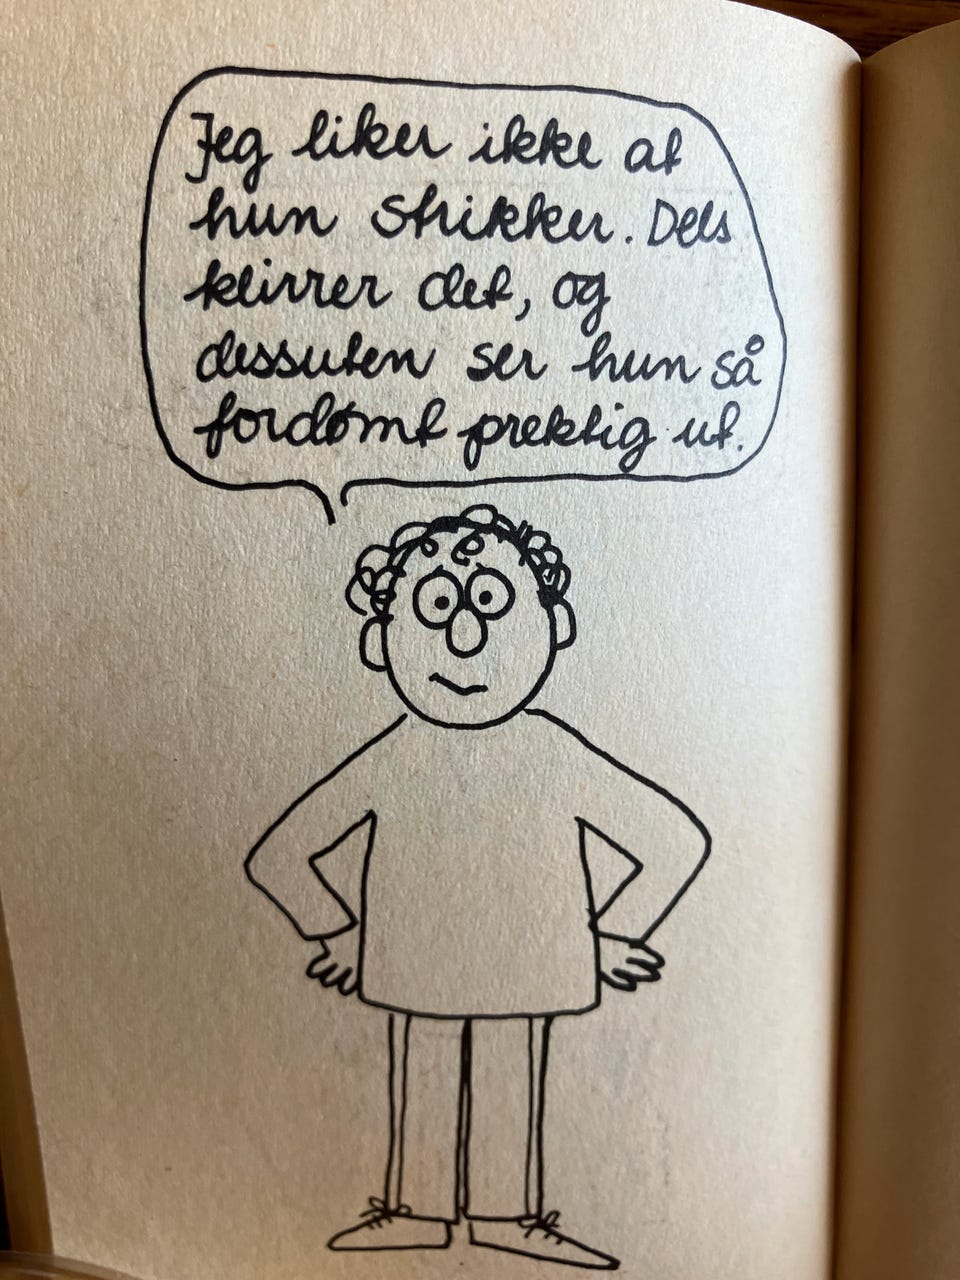 Jeg liker ikke at
hun strikker. Dels
klirrer det, og
dessuten ser hun så
fordømt prektig ut.